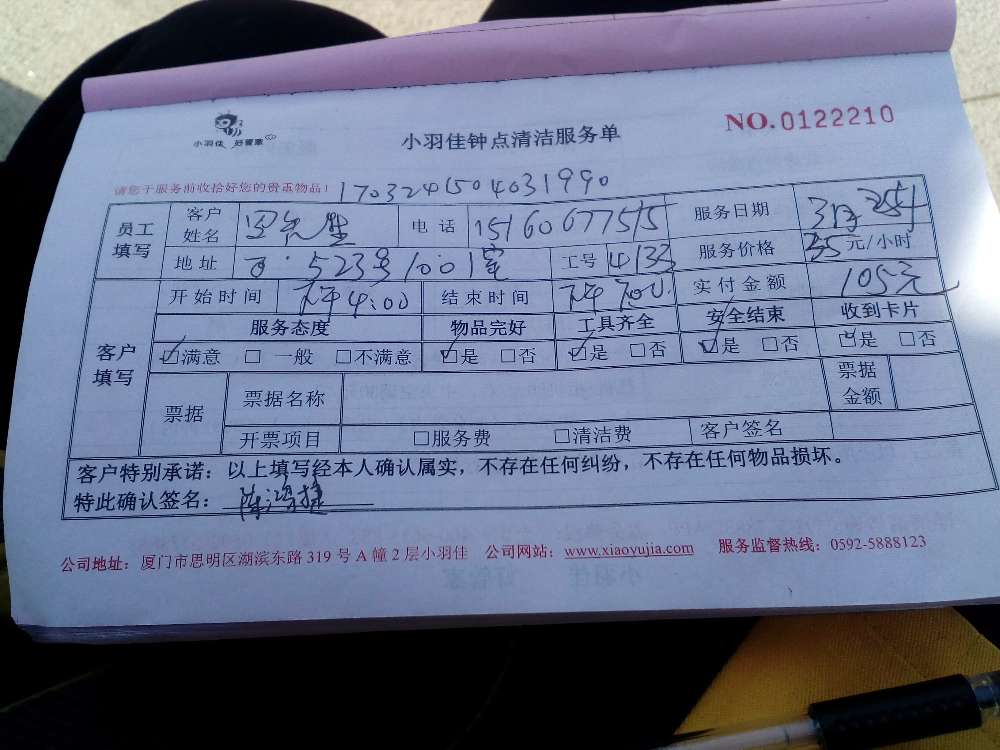 小羽佳 好管家
小羽佳钟点清洁服务单
NO.0122210
请您于服务前收拾好您的贵重物品！ 1703241504031990
员工填写 客户姓名 先生 电话 15160677515 服务日期 3月25日
地址 523号1001室 工号 4133 服务价格 35元/小时
客户填写 开始时间 下午4:00 结束时间 下午7:00 实付金额 105元
服务态度 物品完好 工具齐全 安全结束 收到卡片
☑满意 □一般 □不满意 ☑是 □否 ☑是 □否 ☑是 □否 ☑是 □否
票据 票据名称 票据金额
开票项目 □服务费 □清洁费 客户签名
客户特别承诺：以上填写经本人确认属实，不存在任何纠纷，不存在任何物品损坏。
特此确认签名：陈鸿捷
公司地址：厦门市思明区湖滨东路319号A幢2层小羽佳 公司网站：www.xiaoyujia.com 服务监督热线：0592-5888123